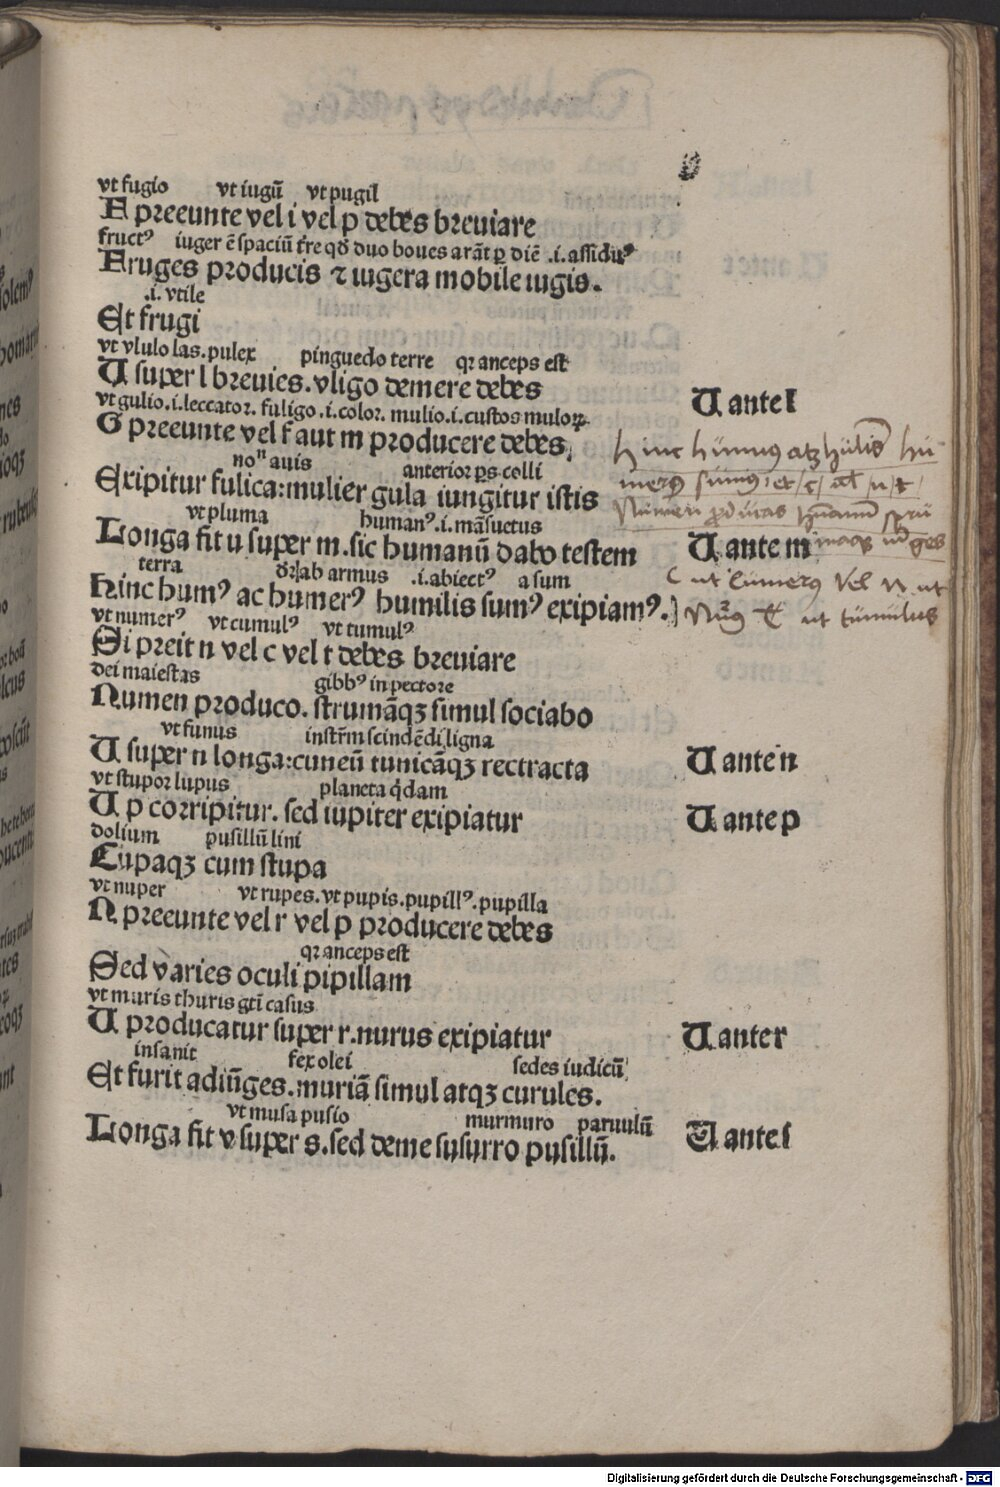 vt fugio vt iugū vt pugil
F preeunte vel i vel p debes breuiare
fructꝰ iuger ē spaciū t̄re qđ duo boues arāt ꝑ diē .i. assiduꝰ
Fruges producis ⁊ iugera mobile iugis.
.i. vtile
Et frugi
vt vlulo las. pulex pinguedo terre qꝛ anceps est
U super l breuies. vligo demere debes
U ante l
vt gulio .i. leccator. fuligo .i. color. mulio .i. custos muloꝝ
G preeunte vel f aut m producere debes,
noⁿ auis anterior ꝑs colli
Excipitur fulica: mulier gula iungitur istis
vt pluma humanꝰ .i. māsuetus
Longa fit u super m. sic humanū dabo testem
U ante m
terra ab armus .i. abiectꝰ a sum
Hinc humꝰ ac humerꝰ humilis sumꝰ excipiamꝰ.
hinc humus atqꝫ humilis hu
merꝰ sumus et c al n t
Numen
ges
C ut cumerus vel N ut
T ut tumulus
vt numerꝰ vt cumulꝰ vt tumulꝰ
Si preit n vel c vel t debes breuiare
dei maiestas gibbꝰ in pectore
Numen produco. strumāqꝫ simul sociabo
vt funus instr̄m scindēdi ligna
U super n longa: cuneū tunicāqꝫ rectracta
U ante n
vt stupor lupus planeta q̇dam
U p corripitur. sed iupiter excipiatur
U ante p
dolium pusillū lini
Cupaqꝫ cum stupa
vt nuper vt rupes. vt pupis. pupillꝰ. pupilla
N preeunte vel r vel p producere debes
qꝛ anceps est
Sed varies oculi pipillam
vt muris thuris gt̄i casus
U producatur super r. nurus excipiatur
U ante r
insanit fex olei sedes iudicū
Et furit adiūges. muriā simul atqꝫ curules.
vt musa pusio murmuro paruulū
Longa fit v super s. sed deme susurro pusillū.
U ante s
Digitalisierung gefördert durch die Deutsche Forschungsgemeinschaft - DFG